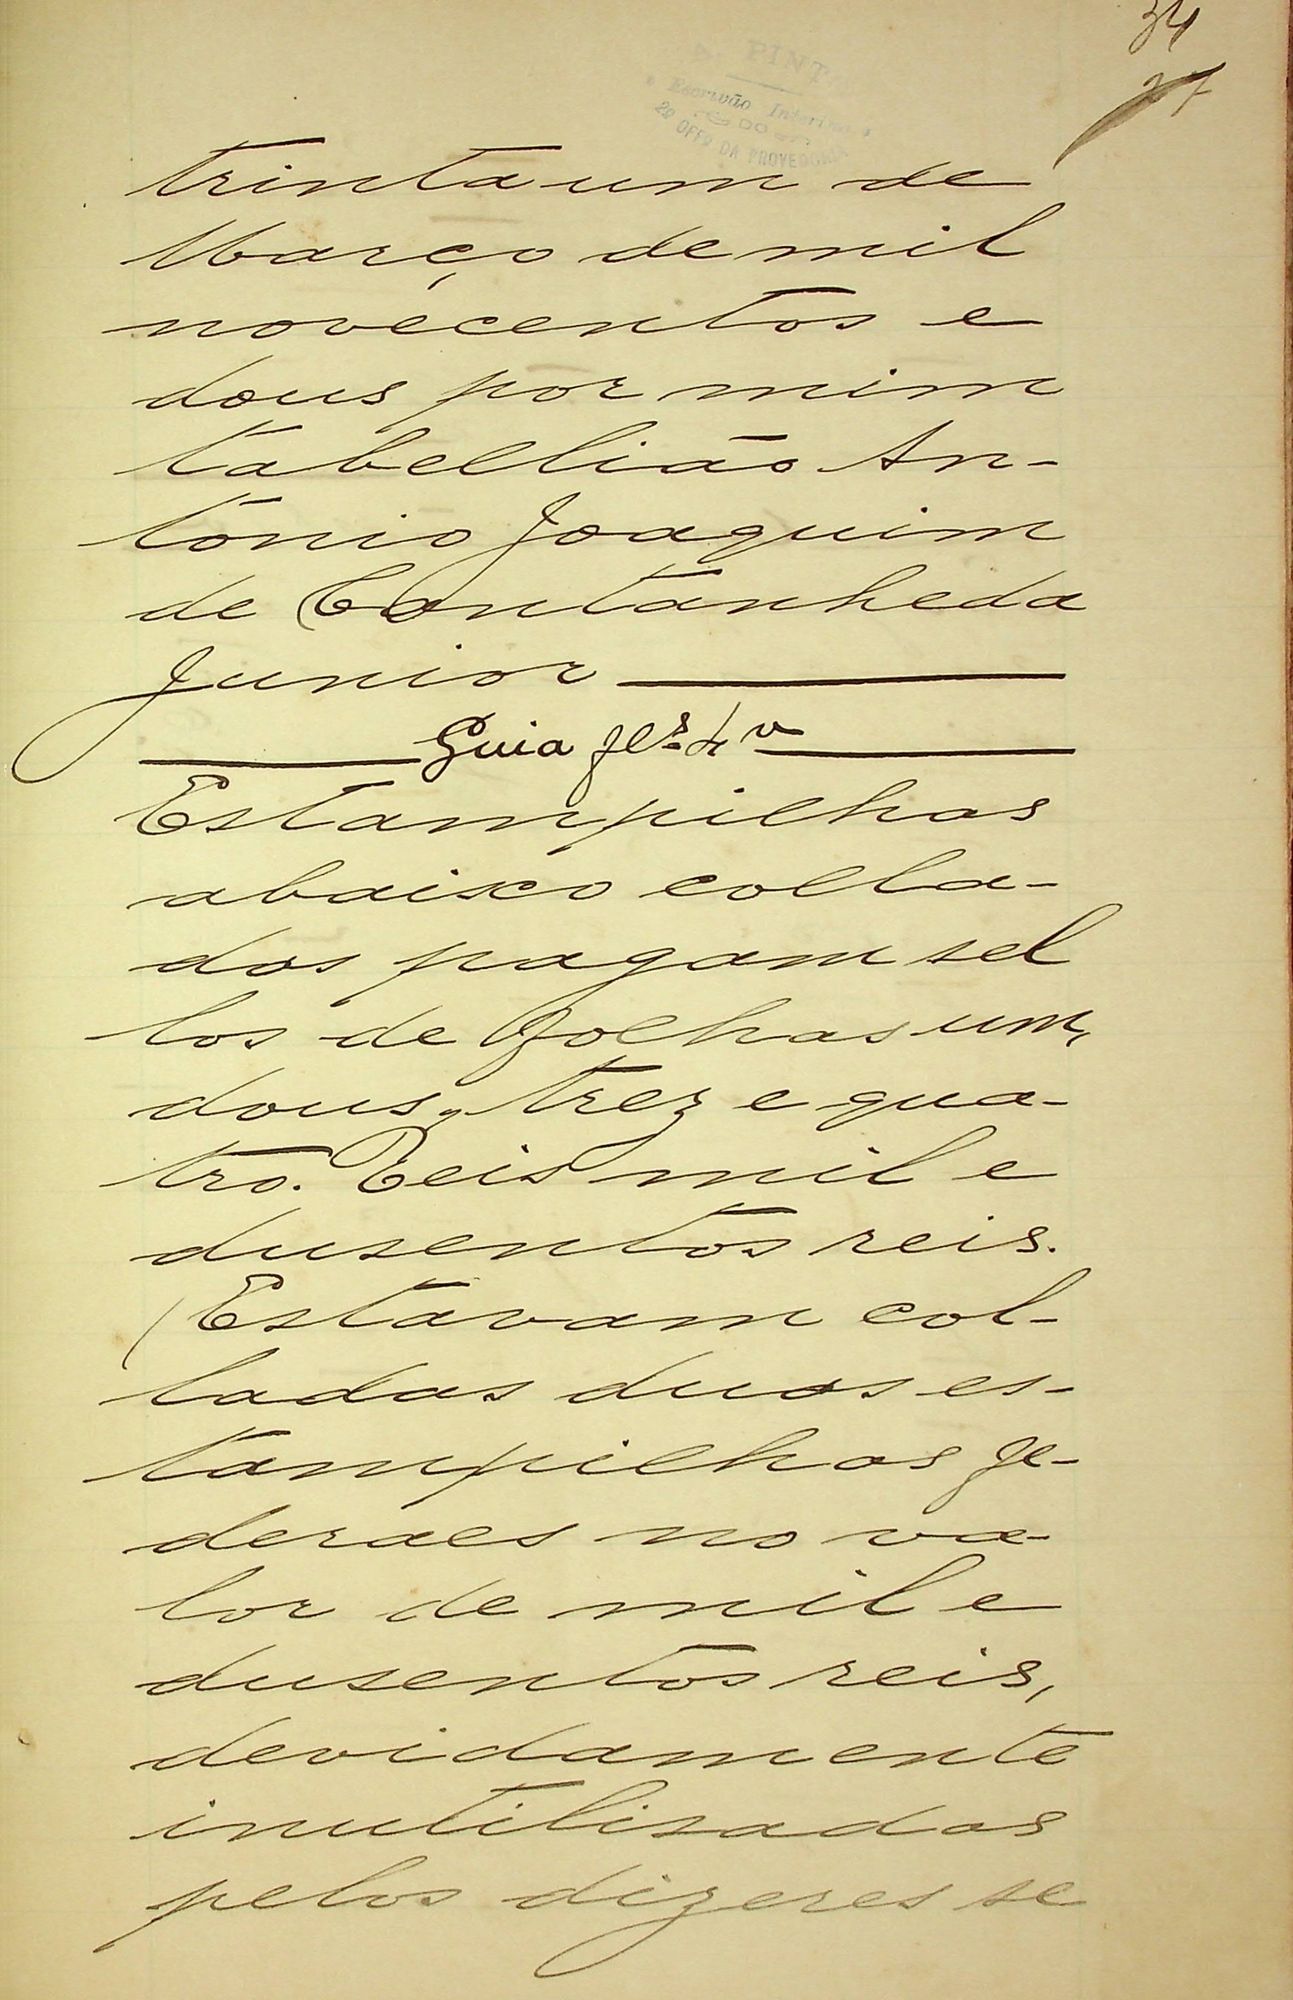 34
27
A. PINTO
Escrivão Interino
DO
2º OFFº DA PROVEDORIA
trinta um de
Março de mil
novecentos e
dous por mim
tabellião An-
tonio Joaquim
de Cantanheda
Junior
Guia fls. 4 v
Estampilhas
abaixo colla-
das pagam sel
los de folhas um,
dous, trez e qua-
tro. Reis mil e
dusentos reis.
Estavam col-
ladas duas es-
tampilhas fe-
deraes no va-
lor de mil e
dusentos reis,
devidamente
inutilisadas
pelos dizeres se